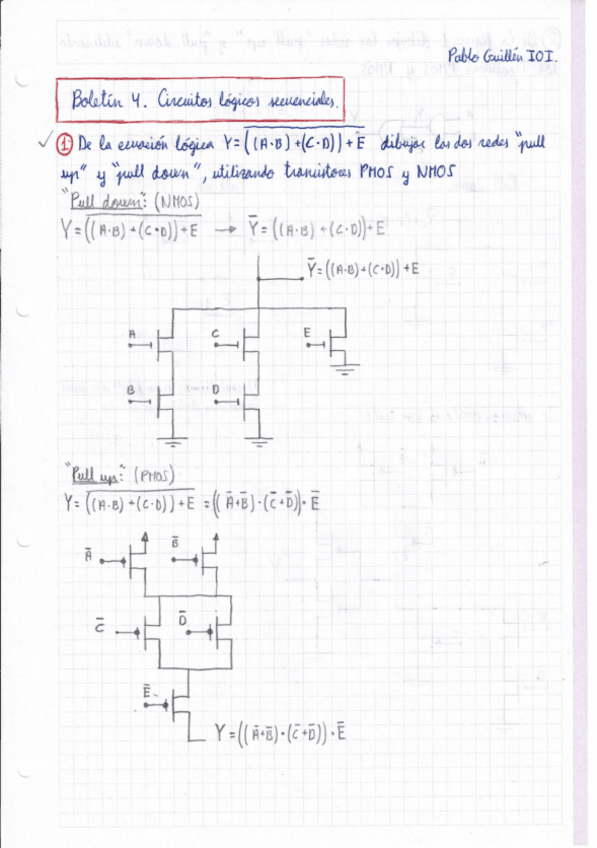 Pablo Guillén IOI.
Boletín 4. Circuitos lógicos secuenciales.
① De la ecuación lógica Y = \overline{((A·B) + (C·D)) + E} dibujar las dos redes "pull
up" y "pull down", utilizando transistores PMOS y NMOS
"Pull down": (NMOS)
Y = \overline{((A·B) + (C·D)) + E} → Ȳ = ((A·B) + (C·D)) + E
Ȳ = ((A·B) + (C·D)) + E
A C E
B D
"Pull up": (PMOS)
Y = \overline{((A·B) + (C·D)) + E} = ((Ā+B̄)·(C̄+D̄))·Ē
Ā B̄
C̄ D̄
Ē
Y = ((Ā+B̄)·(C̄+D̄))·Ē